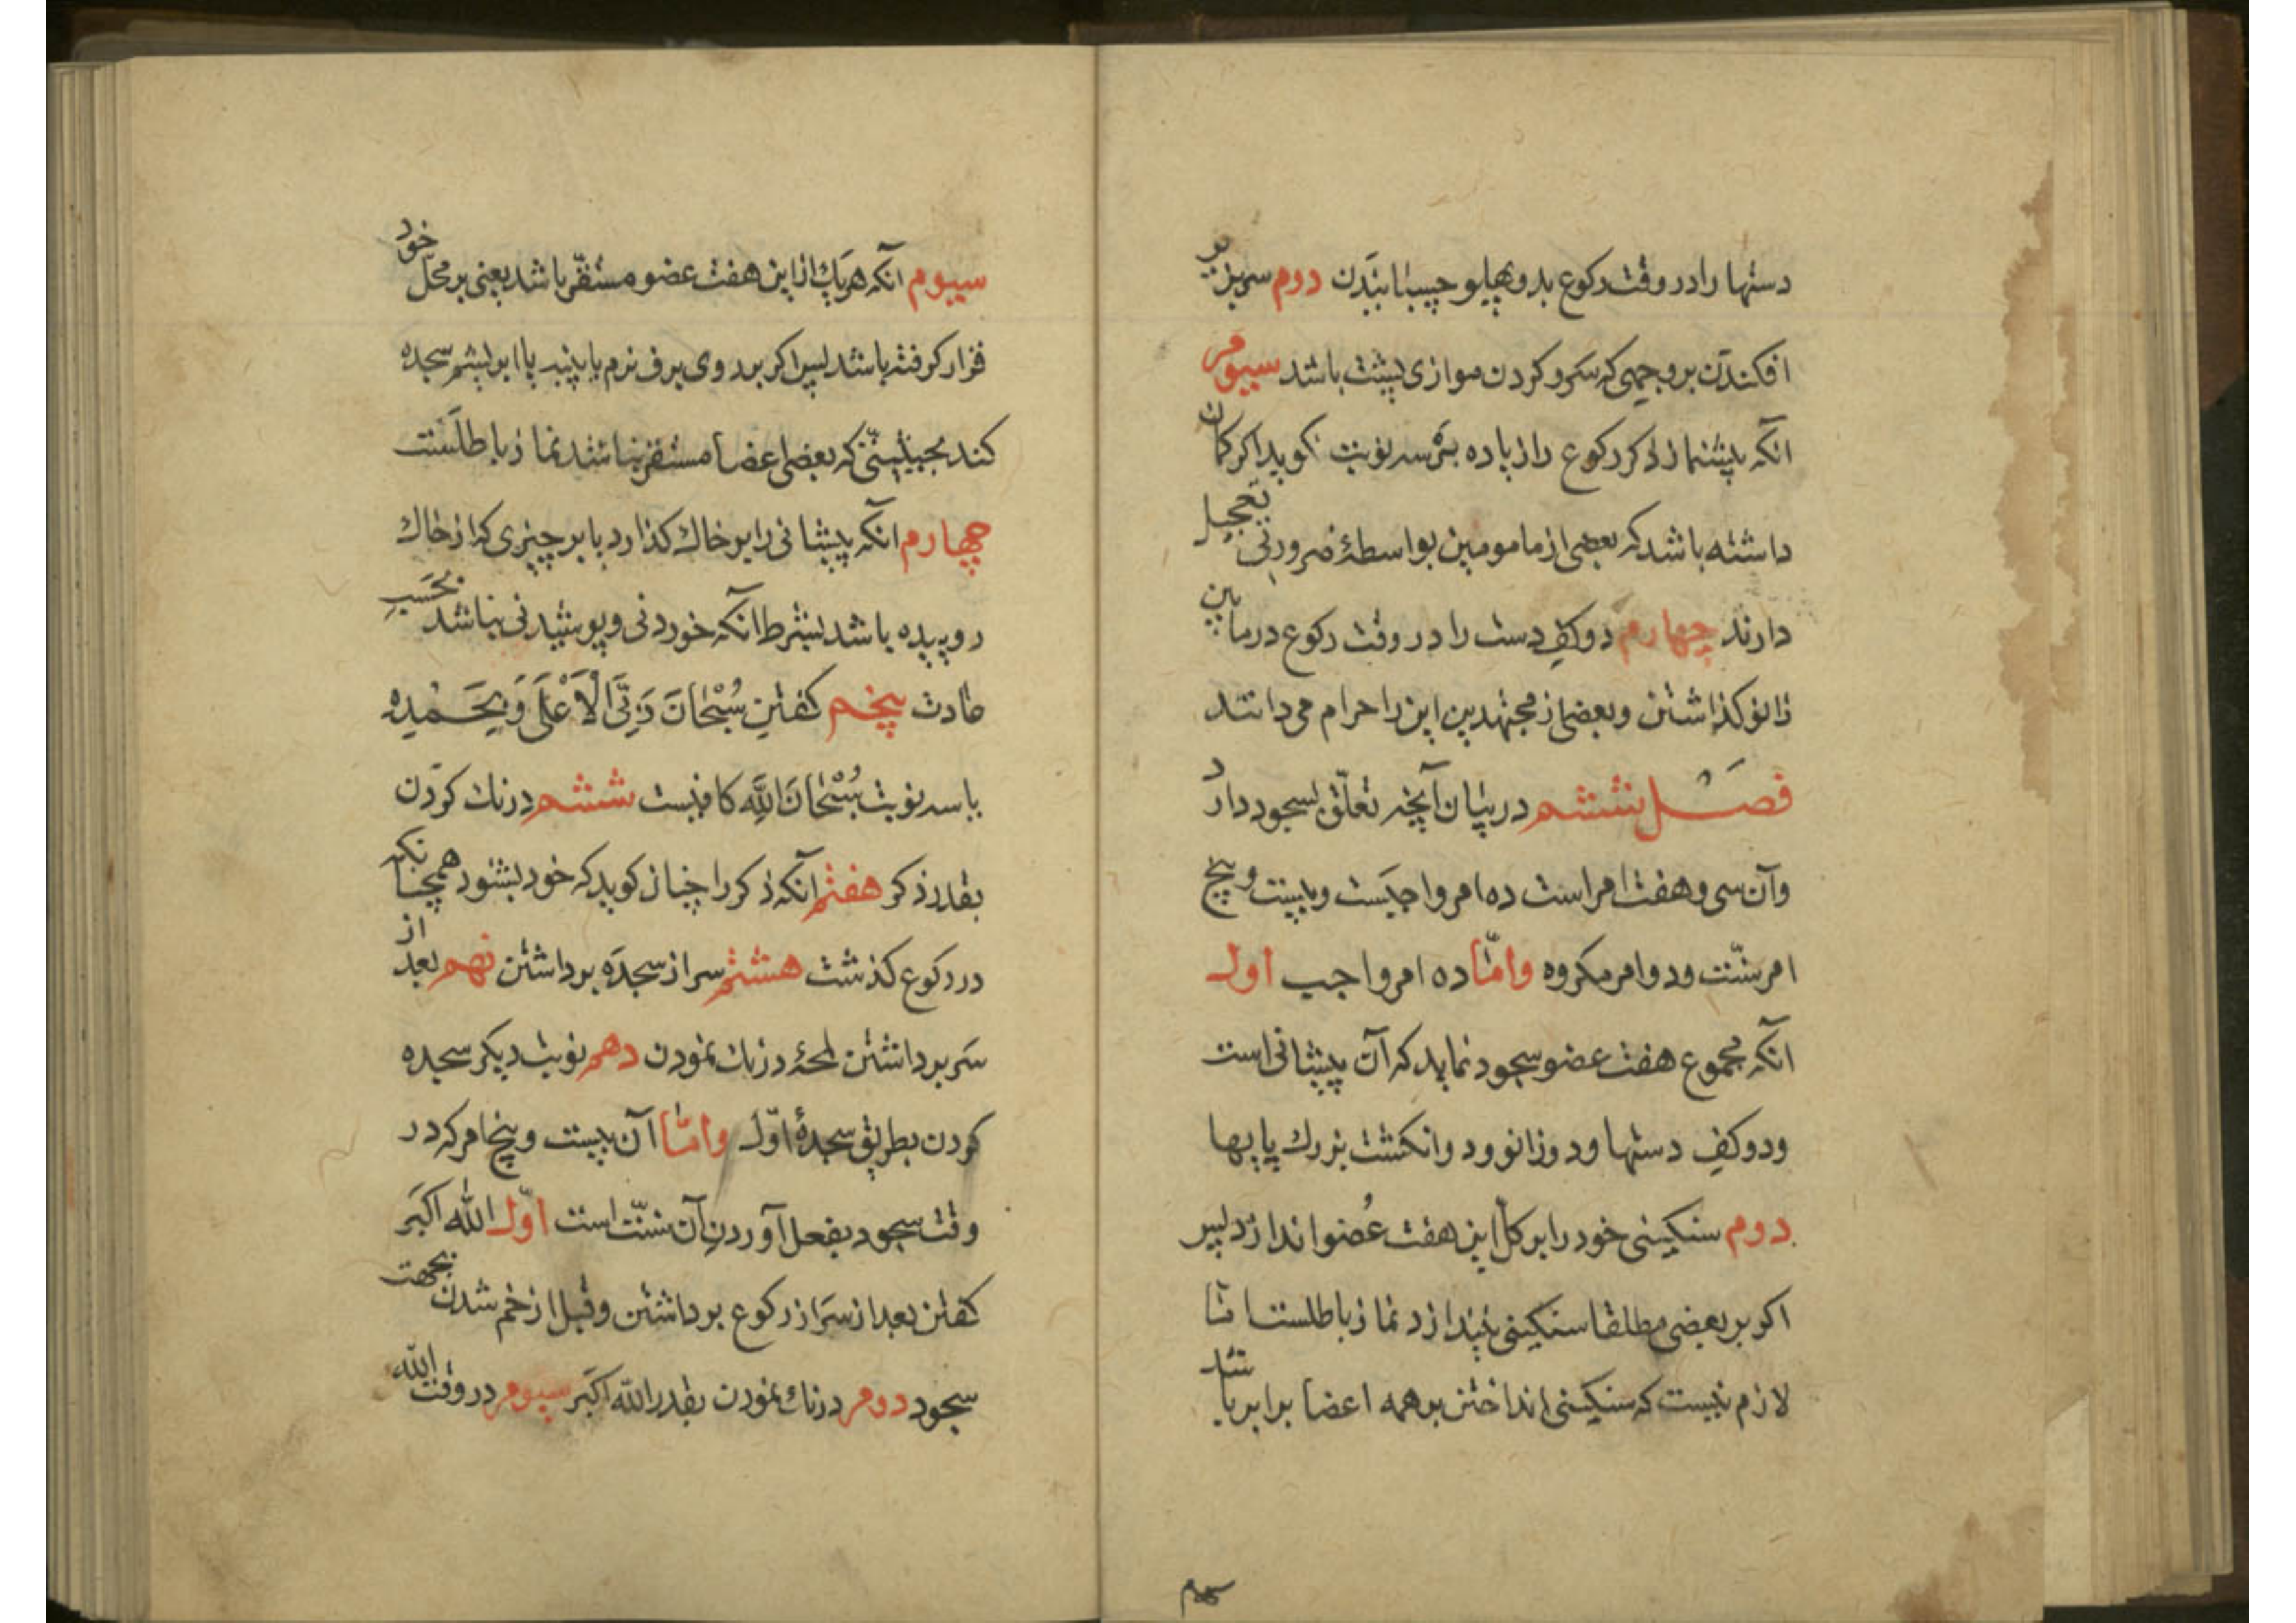 دستها را در وقت رکوع بدو پهلو چسبانیدن دوم سر بزیر
افکندن بر وجهی که سر و کردن موازی پشت باشد سیوم
آنکه پیشنماز ذکر رکوع را زیاده بر سه نوبت نکوید اکر کمان
داشته باشد که بعضی از مامومین بواسطهٔ ضرورتی تعجیل
دارند چهارم دو کف دست را در وقت رکوع در مابین
زانو کذاشتن و بعضی از مجتهدین این را حرام می دانند
فصل ششم در بیان آنچه تعلّق بسجود دارد
وآن سی و هفت امر است ده امر واجبست و بیست و پنج
امر سنّت و دو امر مکروه وامّا ده امر واجب اول
آنکه مجموع هفت عضو سجود نماید که آن پیشانی است
و دو کف دستها و دو زانو و دو انکشت بزرك پایها
دوم سنکینی خود را بر کل این هفت عُضو اندازد پس
اکر بر بعضی مطلقا سنکینی نیندازد نماز باطلست امّا
لازم نیست که سنکینی انداختن بر همه اعضا برابر باشد
سیوم آنکه هریك از این هفت عضو مستقرّ باشد یعنی بر محلّ خود
قرار کرفته باشد پس اکر بر روی برف نرم یا پنبه یا ابریشم سجده
کند بحیثیتی که بعضی اعضا مستقر نباشند نماز باطلست
چهارم آنکه پیشانی را بر خاك کذارد یا بر چیزی که از خاك
روییده باشد بشرط آنکه خوردنی و پوشیدنی نباشد بحَسَبِ
عادت پنجم کفتن سُبْحَانَ رَبِّیَ الْاَعْلَی وَ بِحَمْدِهِ
یا سه نوبت سُبْحَانَ اللّهِ کافیست ششم درنك کردن
بقدر ذکر هفتم آنکه ذکر را چنان کوید که خود بشنود همچنانکه
در رکوع کذشت هشتم سر از سجده برداشتن نهم بعد از
سر برداشتن لمحهٔ درنك نمودن دهم نوبت دیکر سجده
کردن بطریق سجدهٔ اوّل وامّا آن بیست و پنج امر که در
وقت سجود بفعل آوردن آن سنّت است اوّل الله اکبر
کفتن بعد از سر از رکوع برداشتن و قبل از خم شدن بجهت
سجود دوم درنك نمودن بقدر الله اکبر سیوم در وقت الله